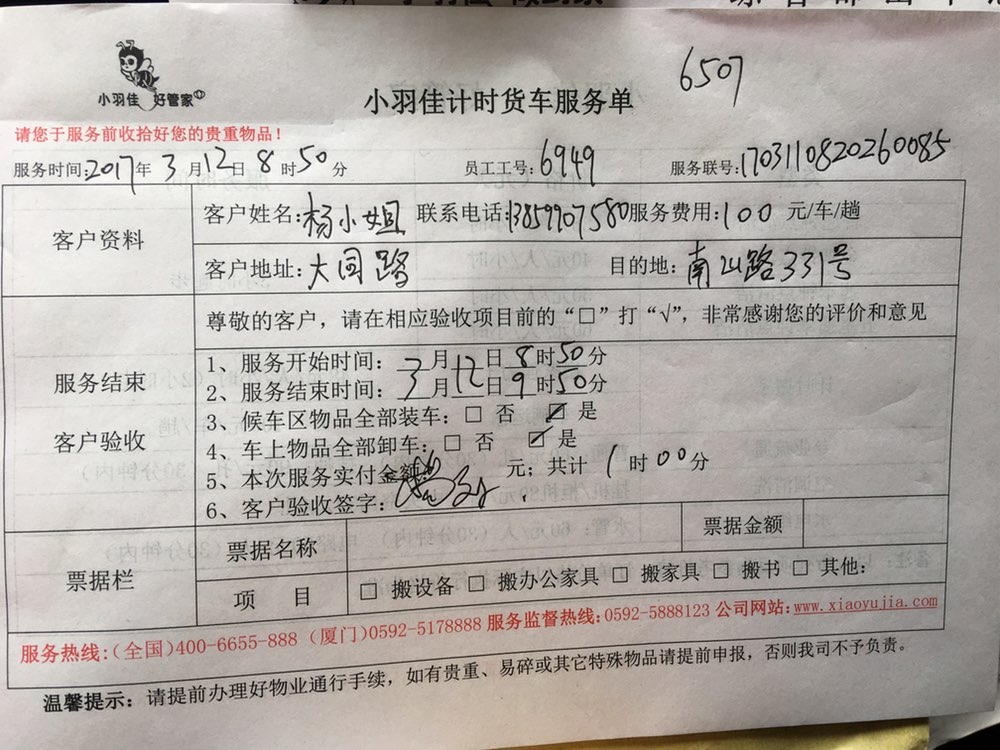 6507
小羽佳 好管家
小羽佳计时货车服务单
请您于服务前收拾好您的贵重物品！
服务时间:2017年 3 月12日 8 时50 分 员工工号:6949 服务联号:1703110820260085
客户资料
客户姓名:杨小姐 联系电话:13859907580服务费用:100 元/车/趟
客户地址:大同路 目的地:南山路331号
服务结束
客户验收
尊敬的客户，请在相应验收项目前的“□”打“√”，非常感谢您的评价和意见
1、服务开始时间: 3 月 12 日 8 时50分
2、服务结束时间: 3 月 12 日 9 时50分
3、候车区物品全部装车：□ 否 ☑ 是
4、车上物品全部卸车：□ 否 ☑ 是
5、本次服务实付金额: 元；共计 1 时00分
6、客户验收签字:
票据栏
票据名称 票据金额
项 目 □ 搬设备 □ 搬办公家具 □ 搬家具 □ 搬书 □ 其他：
服务热线:(全国)400-6655-888 (厦门)0592-5178888 服务监督热线:0592-5888123 公司网站:www.xiaoyujia.com
温馨提示：请提前办理好物业通行手续，如有贵重、易碎或其它特殊物品请提前申报，否则我司不予负责。